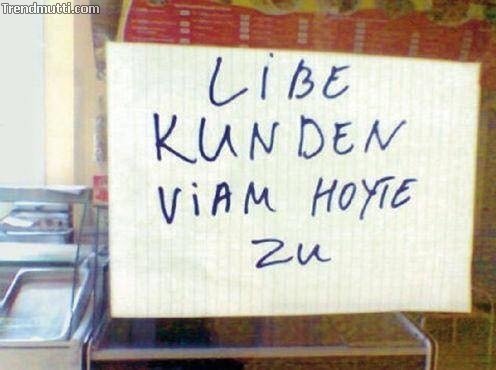 Trendmutti.com
LiBE
KUNDEN
ViAM HOYTE
ZU